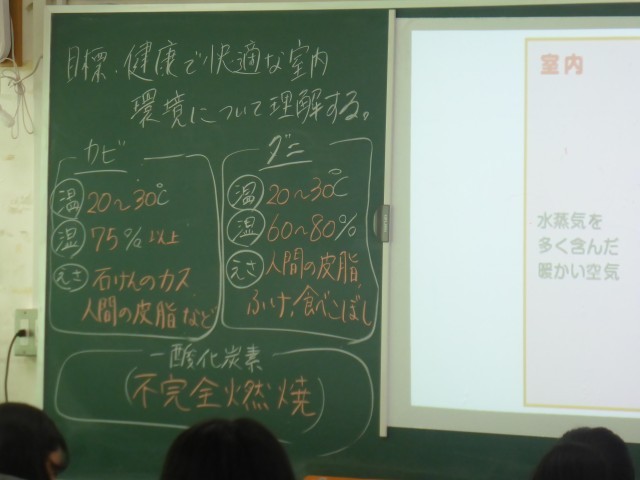 目標.健康で快適な室内
環境について理解する。
カビ
温 20〜30℃
湿 75%以上
えさ 石けんのカス
人間の皮脂など
ダニ
温 20〜30℃
湿 60〜80%
えさ 人間の皮脂
ふけ,食べこぼし
一酸化炭素
(不完全燃焼)
室内
水蒸気を
多く含んだ
暖かい空気